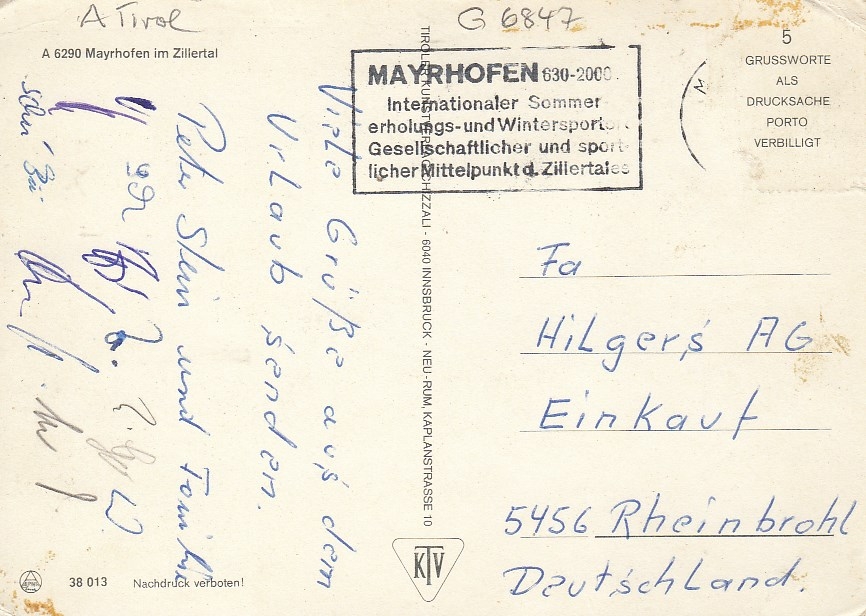 A Tirol
G 6847
A 6290 Mayrhofen im Zillertal
MAYRHOFEN 630-2000
Internationaler Sommer-
erholungs- und Wintersport
Gesellschaftlicher und sport-
licher Mittelpunkt d. Zillertales
5
GRUSSWORTE
ALS
DRUCKSACHE
PORTO
VERBILLIGT
Viele Grüße aus dem
Urlaub senden.
Peter Stein und Familie
TIROLER KUNSTVERLAG CHIZZALI - 6040 INNSBRUCK - NEU-RUM, KAPLANSTRASSE 10
Fa
Hilgers AG
Einkauf
5456 Rheinbrohl
Deutschland.
KTV
38 013
Nachdruck verboten!